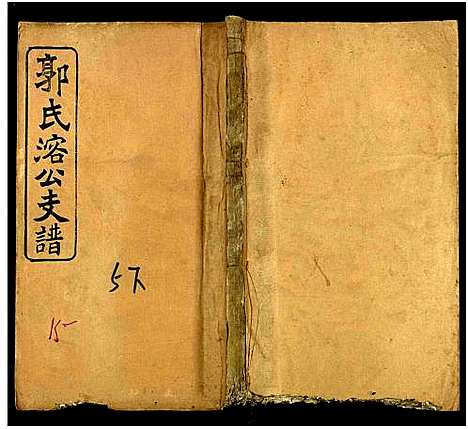 郭氏溶公支譜
5下
15